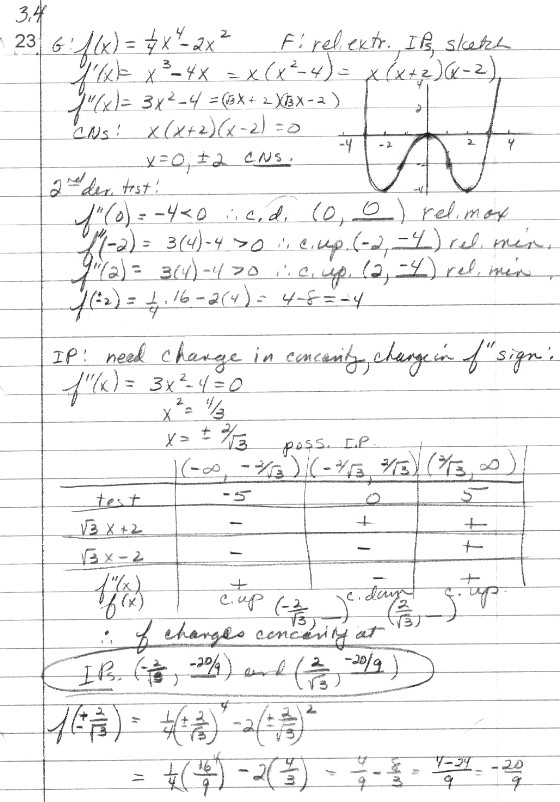 3.4
23 G: f(x) = 1/4 x⁴ - 2x²   F: rel. extr., IPs, sketch
f'(x) = x³ - 4x = x(x² - 4) = x(x+2)(x-2)
f''(x) = 3x² - 4 = (√3x + 2)(√3x - 2)
CNs: x(x+2)(x-2) = 0
x = 0, ±2 CNs.
-4 -2 2 4
4
2
-4
2nd der. test:
f''(0) = -4 < 0 ∴ c.d. (0, 0) rel. max
f''(-2) = 3(4) - 4 > 0 ∴ c. up. (-2, -4) rel. min.
f''(2) = 3(4) - 4 > 0 ∴ c. up. (2, -4) rel. min.
f(±2) = 1/4 · 16 - 2(4) = 4 - 8 = -4
IP: need change in concavity, change in f'' sign:
f''(x) = 3x² - 4 = 0
x² = 4/3
x = ± 2/√3 poss. I.P.
(-∞, -2/√3) (-2/√3, 2/√3) (2/√3, ∞)
test -5 0 5
√3x + 2 - + +
√3x - 2 - - +
f''(x) + - +
f(x) c. up (-2/√3, __) c. down (2/√3, __) c. up.
∴ f changes concavity at
IPs. (-2/√3, -20/9) and (2/√3, -20/9)
f(±2/√3) = 1/4(±2/√3)⁴ - 2(±2/√3)²
= 1/4(16/9) - 2(4/3) = 4/9 - 8/3 = 4-24/9 = -20/9